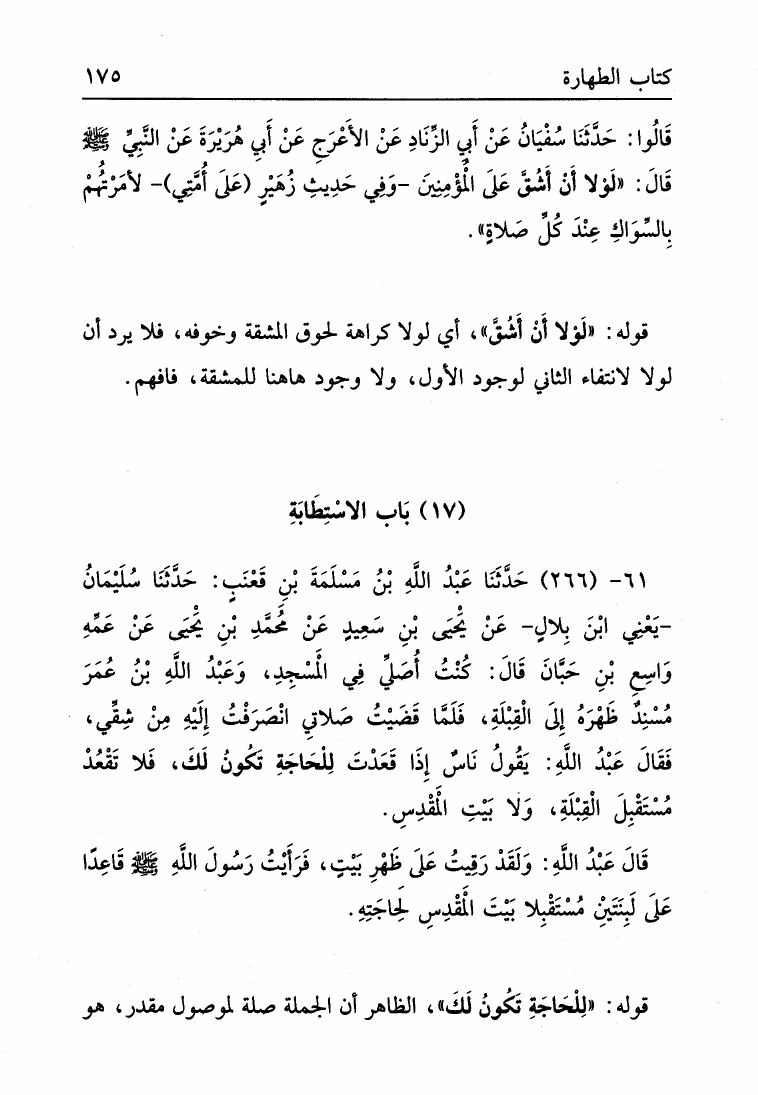 كتاب الطهارة ١٧٥
قَالُوا: حَدَّثَنَا سُفْيَانُ عَنْ أَبِي الزِّنَادِ عَنْ الأَعْرَجِ عَنْ أَبِي هُرَيْرَةَ عَنْ النَّبِيِّ ﷺ
قَالَ: «لَوْلا أَنْ أَشُقَّ عَلَى الْمُؤْمِنِينَ -وَفِي حَدِيثِ زُهَيْرٍ (عَلَى أُمَّتِي)- لأَمَرْتُهُمْ
بِالسِّوَاكِ عِنْدَ كُلِّ صَلاةٍ».
قوله: «لَوْلا أَنْ أَشُقَّ»، أي لولا كراهة لحوق المشقة وخوفه، فلا يرد أن
لولا لانتفاء الثاني لوجود الأول، ولا وجود هاهنا للمشقة، فافهم.
(١٧) بَاب الاسْتِطَابَةِ
٦١- (٢٦٦) حَدَّثَنَا عَبْدُ اللَّهِ بْنُ مَسْلَمَةَ بْنِ قَعْنَبٍ: حَدَّثَنَا سُلَيْمَانُ
-يَعْنِي ابْنَ بِلالٍ- عَنْ يَحْيَى بْنِ سَعِيدٍ عَنْ مُحَمَّدِ بْنِ يَحْيَى عَنْ عَمِّهِ
وَاسِعِ بْنِ حَبَّانَ قَالَ: كُنْتُ أُصَلِّي فِي الْمَسْجِدِ، وَعَبْدُ اللَّهِ بْنُ عُمَرَ
مُسْنِدٌ ظَهْرَهُ إِلَى الْقِبْلَةِ، فَلَمَّا قَضَيْتُ صَلاتِي انْصَرَفْتُ إِلَيْهِ مِنْ شِقِّي،
فَقَالَ عَبْدُ اللَّهِ: يَقُولُ نَاسٌ إِذَا قَعَدْتَ لِلْحَاجَةِ تَكُونُ لَكَ، فَلا تَقْعُدْ
مُسْتَقْبِلَ الْقِبْلَةِ، وَلَا بَيْتِ الْمَقْدِسِ.
قَالَ عَبْدُ اللَّهِ: وَلَقَدْ رَقِيتُ عَلَى ظَهْرِ بَيْتٍ، فَرَأَيْتُ رَسُولَ اللَّهِ ﷺ قَاعِدًا
عَلَى لَبِنَتَيْنِ مُسْتَقْبِلا بَيْتَ الْمَقْدِسِ لِحَاجَتِهِ.
قوله: «لِلْحَاجَةِ تَكُونُ لَكَ»، الظاهر أن الجملة صلة لموصول مقدر، هو